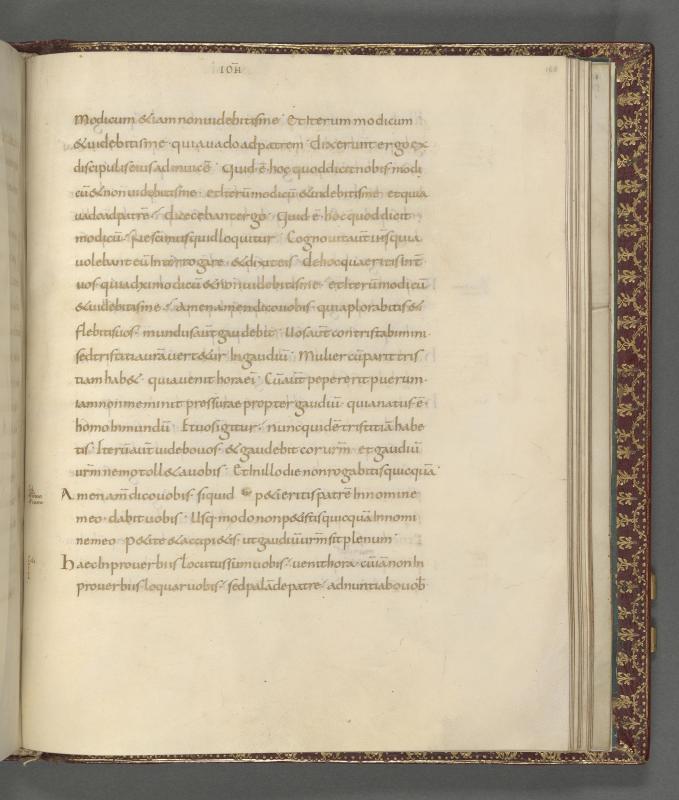 IOH̄
168
Modicum & iam non videbitis me · Et Iterum modicum
& videbitis me · quia vado ad patrem · dixerunt ergo ex
discipulis eius ad invicē · Quid · ē · hoc quod dicit nobis · modi
cū & non videbitis me · et Iterū modicū & videbitis me · et quia
vado ad patrē · dicebant ergo · Quid · ē · hoc quod dicit
modicū · Nescimus quid loquitur · Cognovit aūt ih̄s quia
volebant eū Interrogare · & dixit eis · de hoc quaeritis Int̄
vos · quia dixi modicū & non videbitis me · et Iterū modicū
& videbitis me · Amen amen dico vobis · quia plorabitis &
flebitis vos · mundus aūt gaudebit · Vos aūt contristabimini ·
sed tristitia v̄ra vert&ur In gaudiū · Mulier cū parit tris
tiam hab& · quia venit hora ei · Cū aūt pepererit puerum ·
iam non meminit pressurae propter gaudiū · quia natus · ē ·
homo In mundū · Et vos igitur · nunc quidē tristitiā habe
tis · Iterū aūt videbo vos · & gaudebit cor v̄rm · et gaudiū
v̄rm nemo toll& a vobis · Et In illo die non rogabitis quicquā
Amen am̄ dico vobis · si quid p&ieritis patrē In nomine
meo · dabit vobis · Usq· modo non p&istis quicquā In nomi
ne meo · P&ite & accipi&is · ut gaudiū v̄rm sit plenum ·
Haec In proverbiis locutus sum vobis · venit hora · cū iā non In
proverbiis · loquar vobis · sed palā de patre · adnuntiabo vob̄